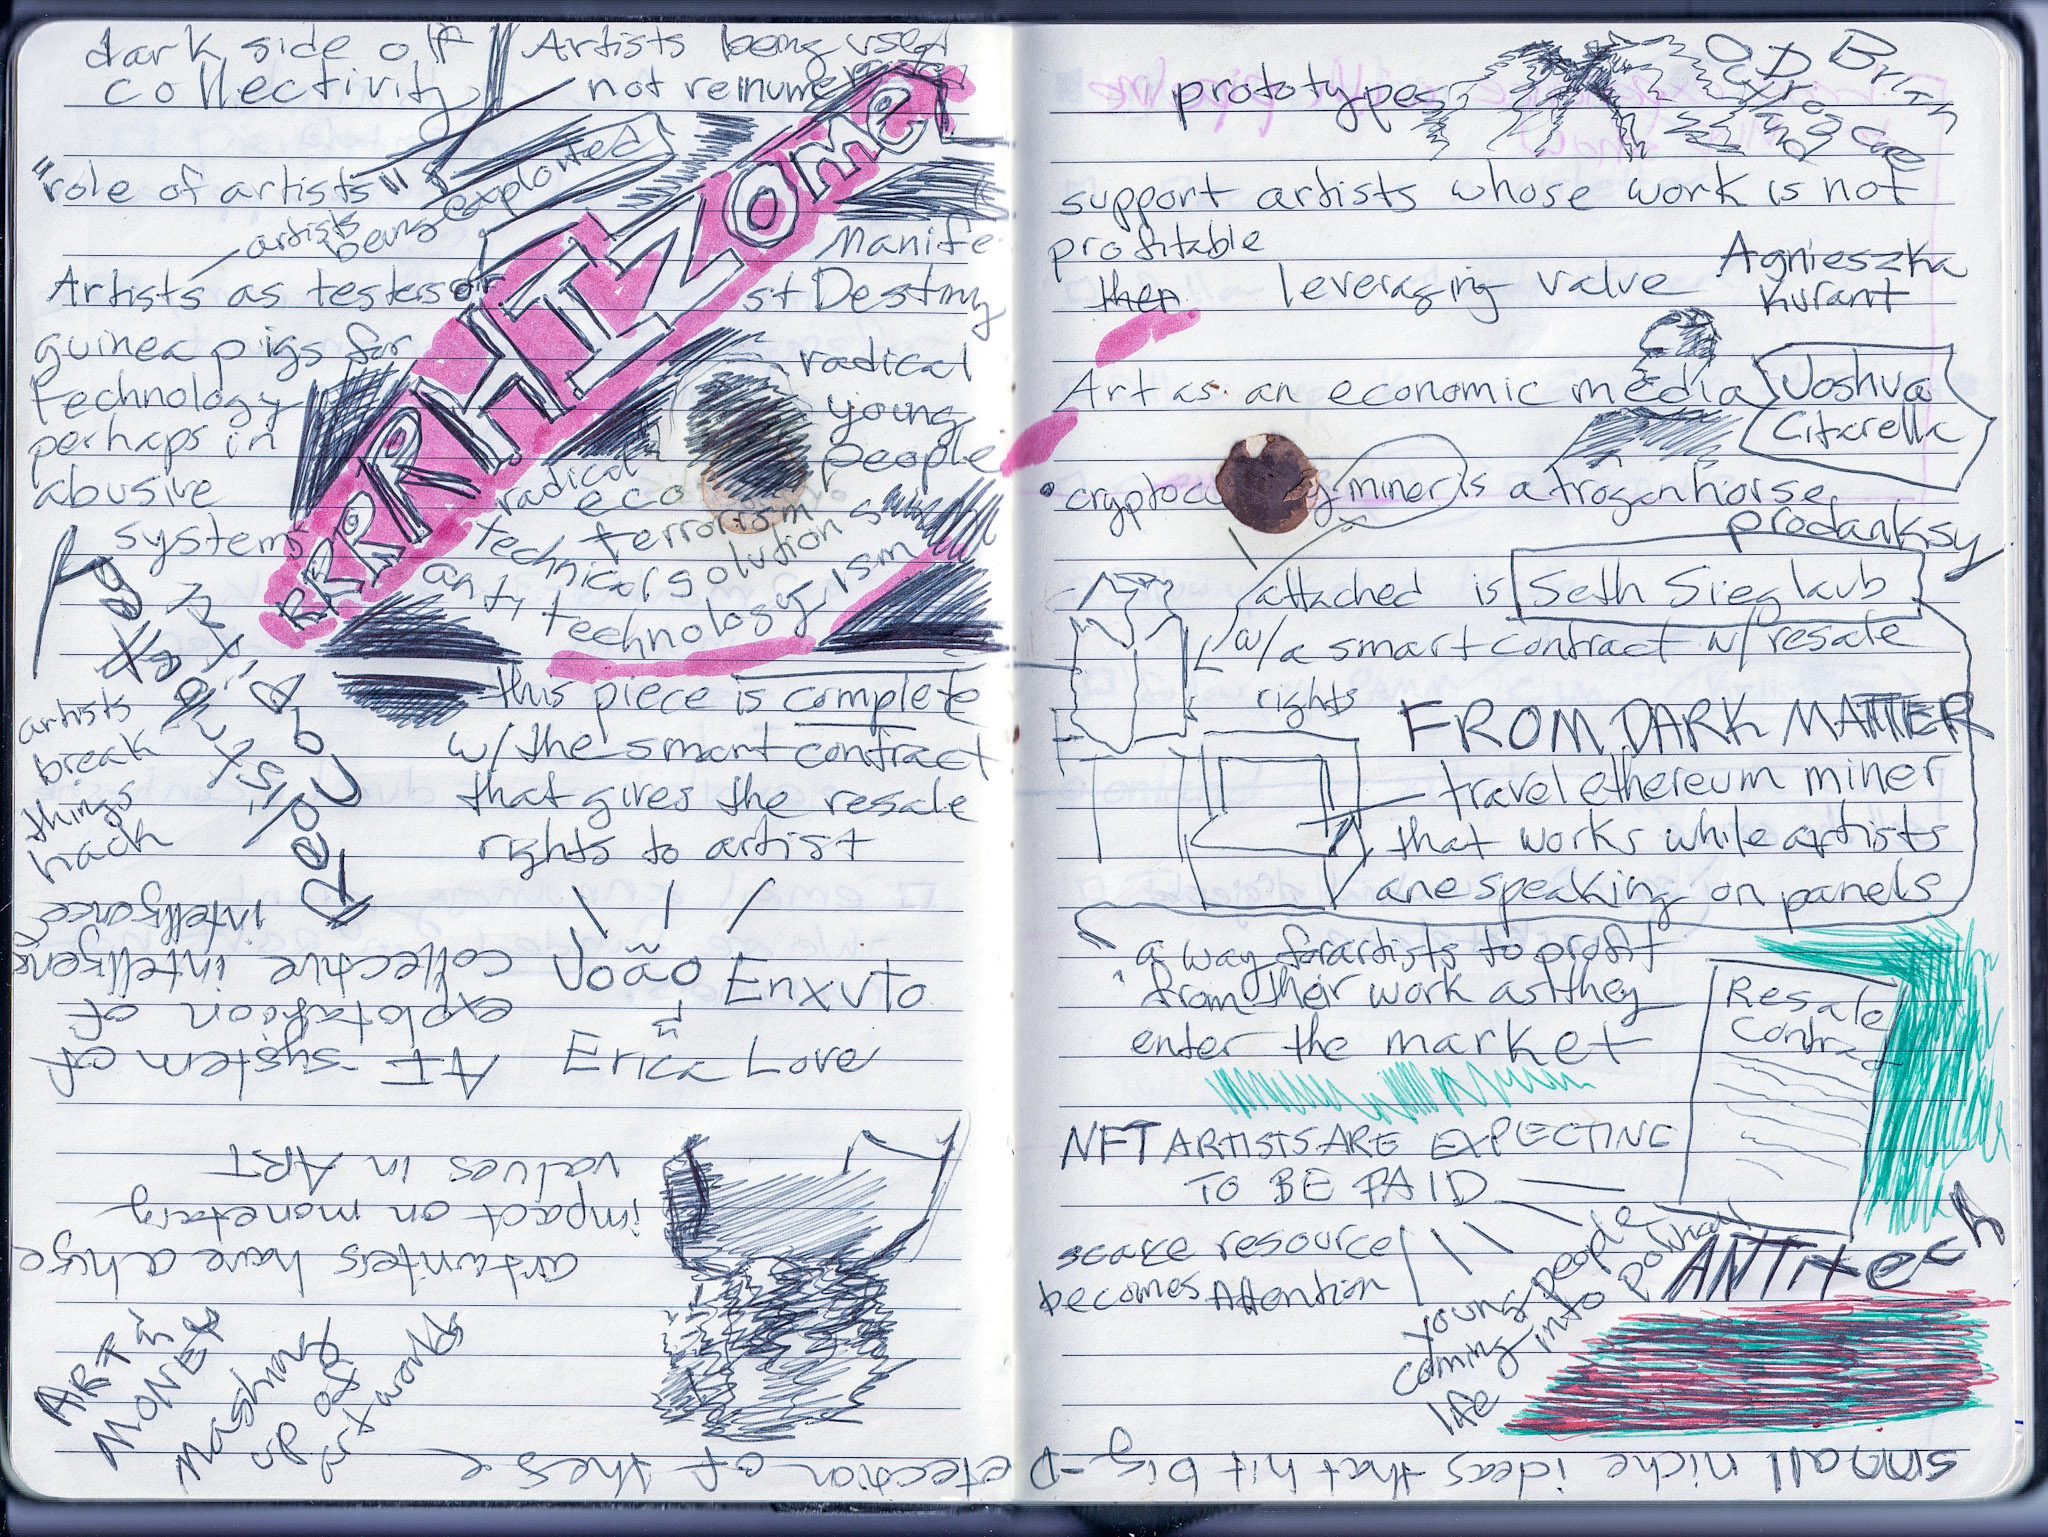 dark side of
collectivity
Artists being used
not reinume
"role of artists"
artists
being exploited
Artists as testers or
guinea pigs for
technology
perhaps in
abusive
systems
RRRRHIZOME
Manife
st Destiny
radical
young
people
radical
eco
terrorism
technical solutions
anti technology, ism
artists
break
things
hack
this piece is complete
w/ the smart contract
that gives the resale
rights to artist
João Enxuto
Erica Love
AF-system of
explotatioon of
collective intelligence
intelligence
artwriters have a huge
impact on monetary
values in ART
ART
MONEY
mashing
up of
artworks
prototypes
support artists whose work is not
profitable
then leveraging value
Agnieszka
Kurant
Art as an economic media
Joshua
Citarella
miner is a trojan horse
prodanksy
attached is Seth Sieglaub
w/a smart contract w/ resale
rights
FROM DARK MATTER
travel ethereum miner
that works while artists
are speaking on panels
a way for artists to profit
from their work as they
enter the market
Resale
Contract
NFT ARTISTS ARE EXPECTING
TO BE PAID
scare resource
becomes Attention
young people
coming into political
life
ANTI tech
small niche ideas that hit big-D
etection of these